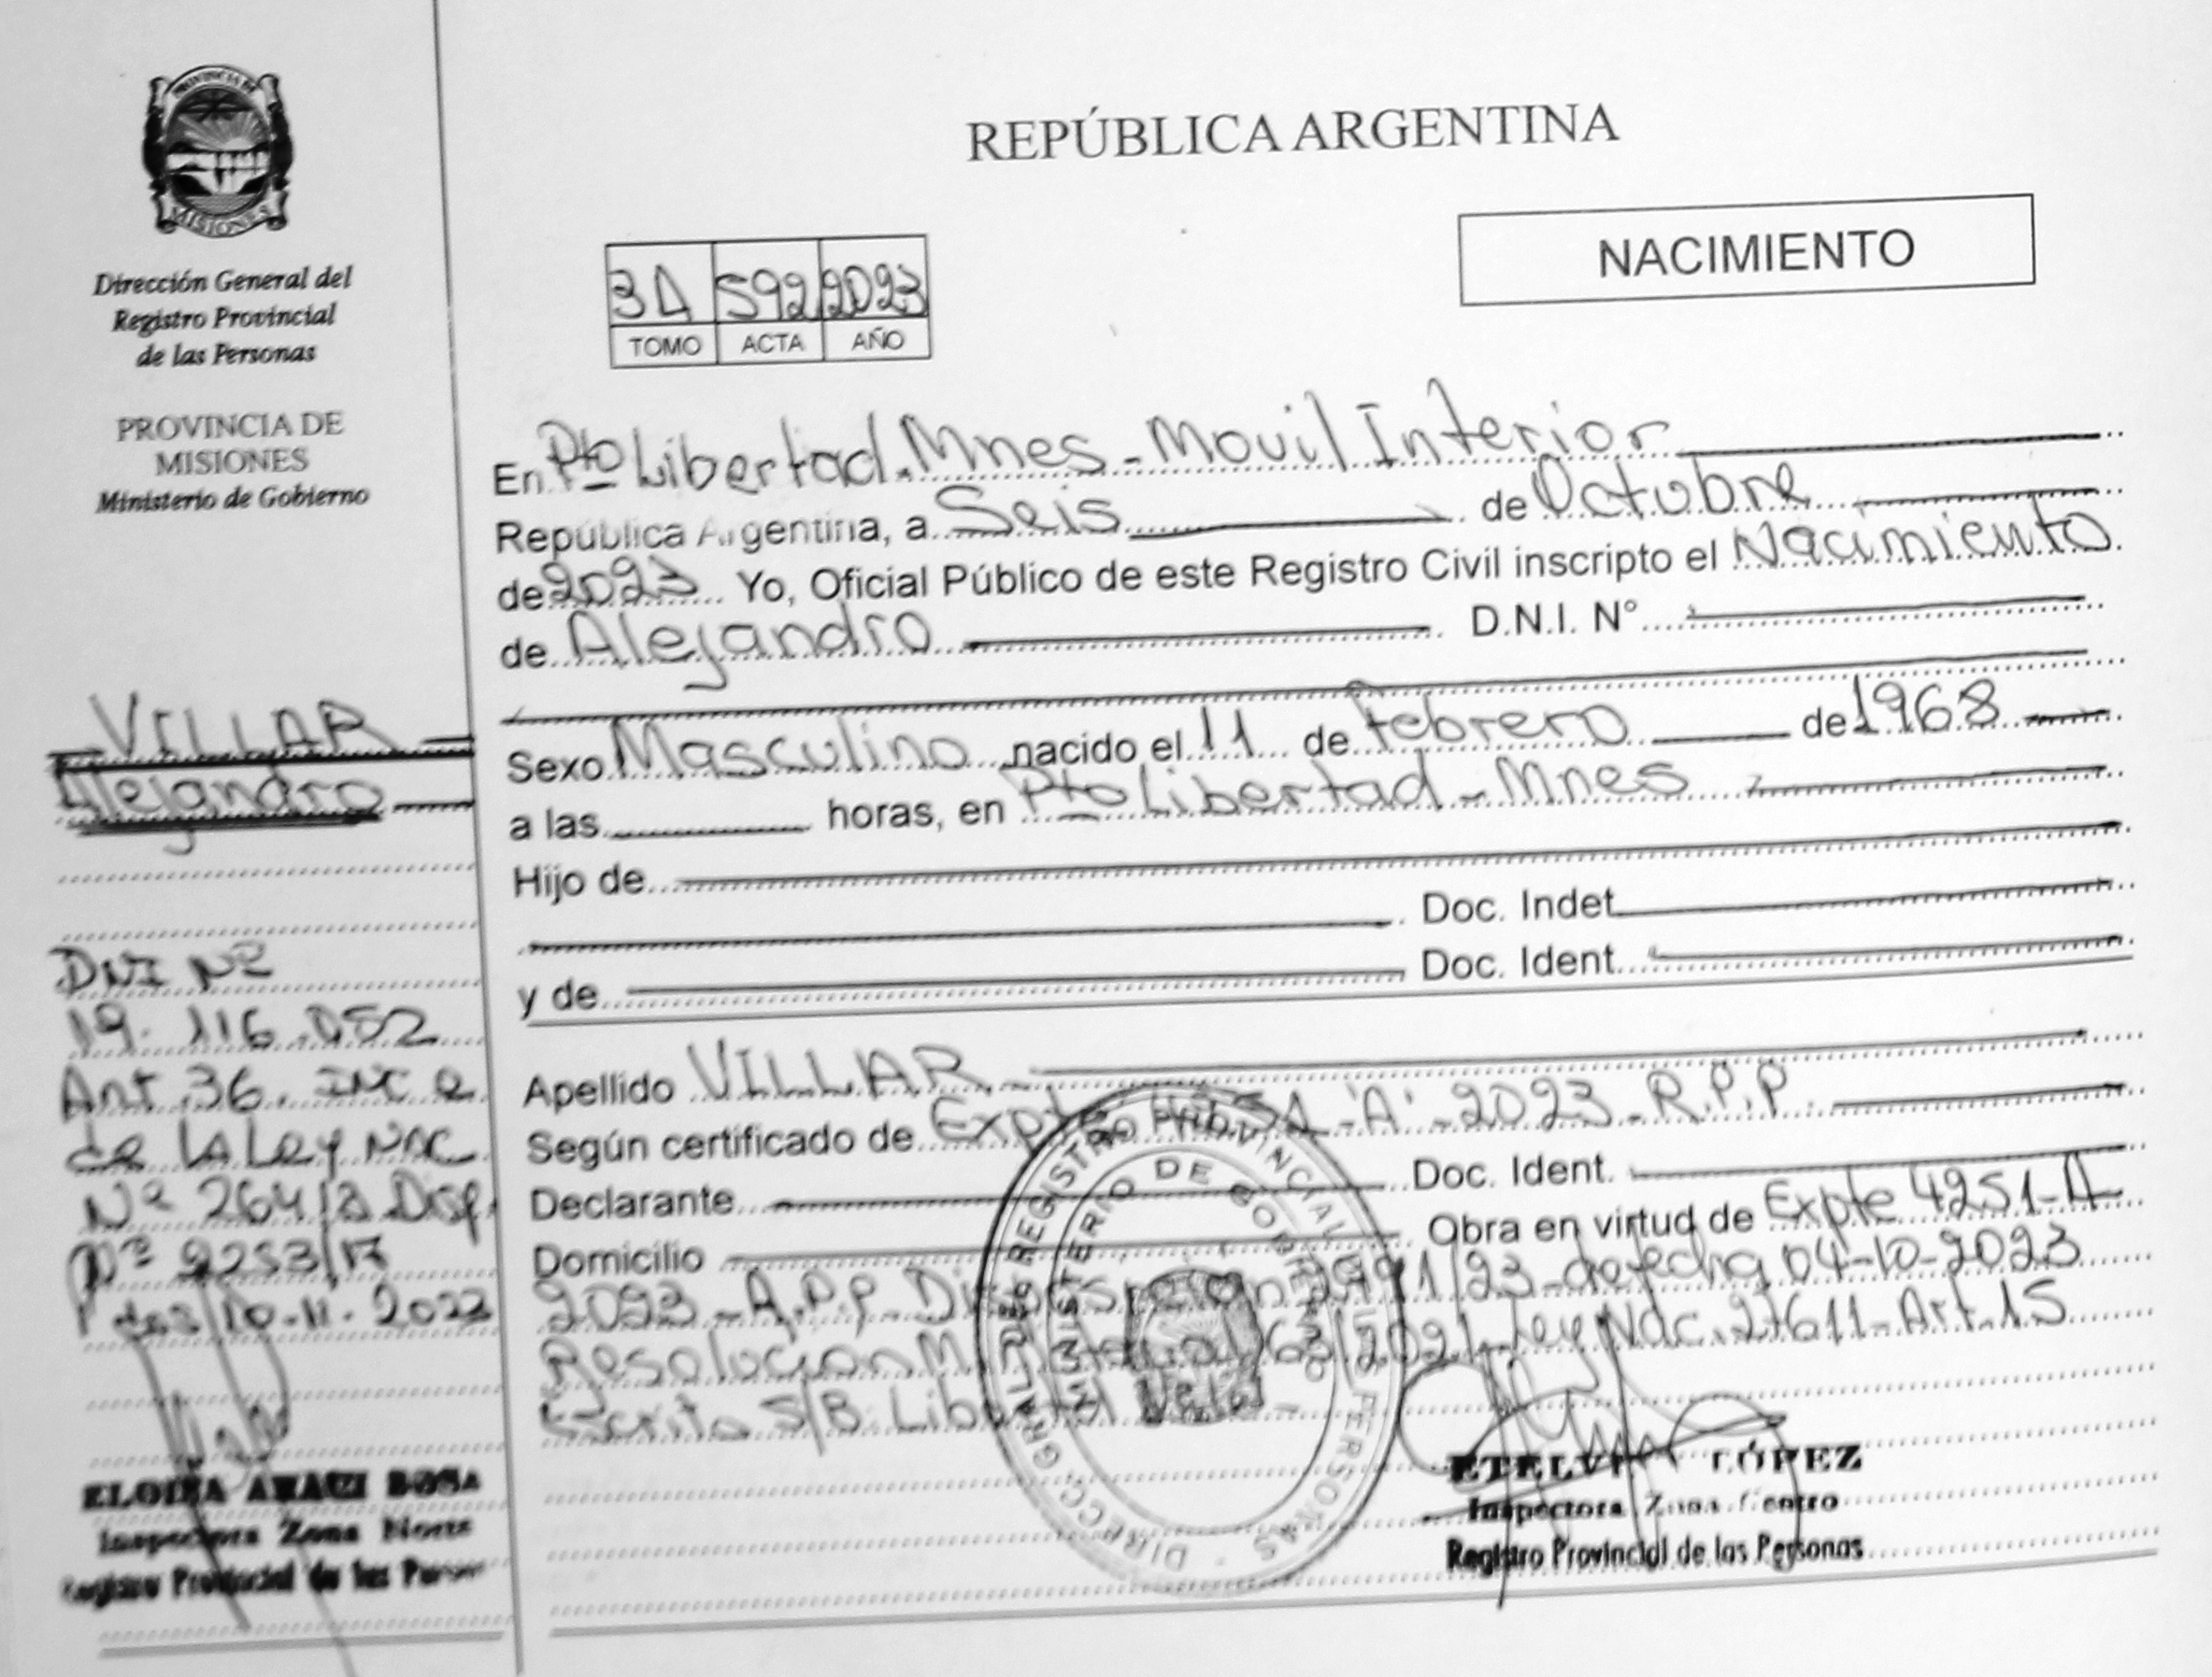 PROVINCIA DE
MISIONES
Dirección General del
Registro Provincial
de las Personas
PROVINCIA DE
MISIONES
Ministerio de Gobierno
VILLAR
Alejandro
DNI Nº
19.116.052
Art 36. INC
de LA Ley NAC
Nº 264
2022
ELOISA BOSA
Inspectora Zona Norte
Registro Provincial de las
REPÚBLICA ARGENTINA
NACIMIENTO
592 2023
TOMO ACTA AÑO
En Pto Libertad - Mnes - Movil Interior
República Argentina, a Seis de Octubre
de 2023 Yo, Oficial Público de este Registro Civil inscripto el Nacimiento
de Alejandro D.N.I. N°
Sexo Masculino nacido el 11 de Febrero de 1968
a las horas, en Pto Libertad - Mnes
Hijo de
Doc. Indet
y de Doc. Ident.
Apellido VILLAR
Según certificado de Expte -'A'- 2023 - R.P.P.
Declarante Doc. Ident.
Domicilio Obra en virtud de Expte 4251-A
2023 - /23 - de fecha 04-10-2023
Ley Nac. 27611 - Art. 15
S/B. Libertad
DIRECC. GRAL. DEL REGISTRO PROVINCIAL DE LAS PERSONAS
MINISTERIO DE GOBIERNO
LÓPEZ
Inspectora Zona Centro
Registro Provincial de las Personas